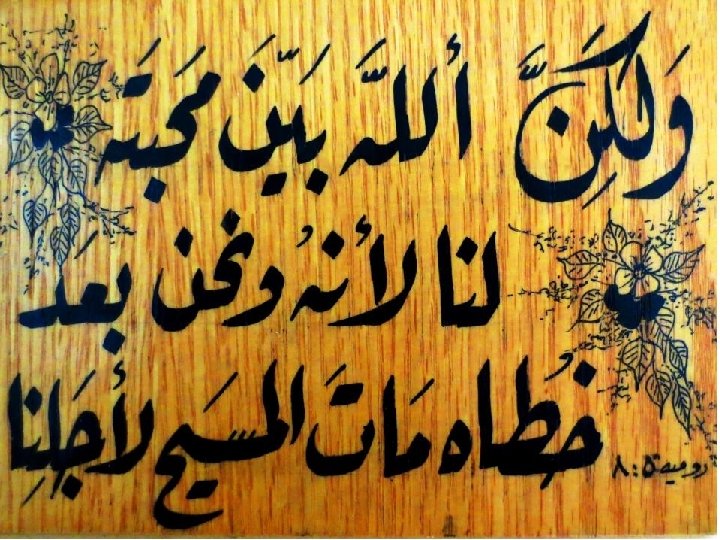 وَلَكِنَّ أللَّه بَيَّنَ مَحَبَتَه
لنا لأنهُ ونحن بعَد
خُطاه مَاتَ المسَيح لأجَلِنا
روميه ٥: ٨